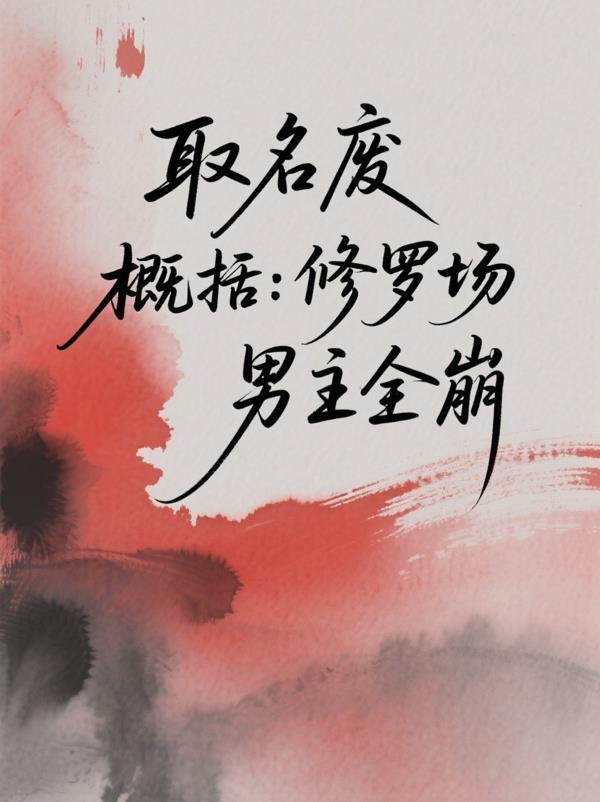 取名废
概括:修罗场
男主全崩